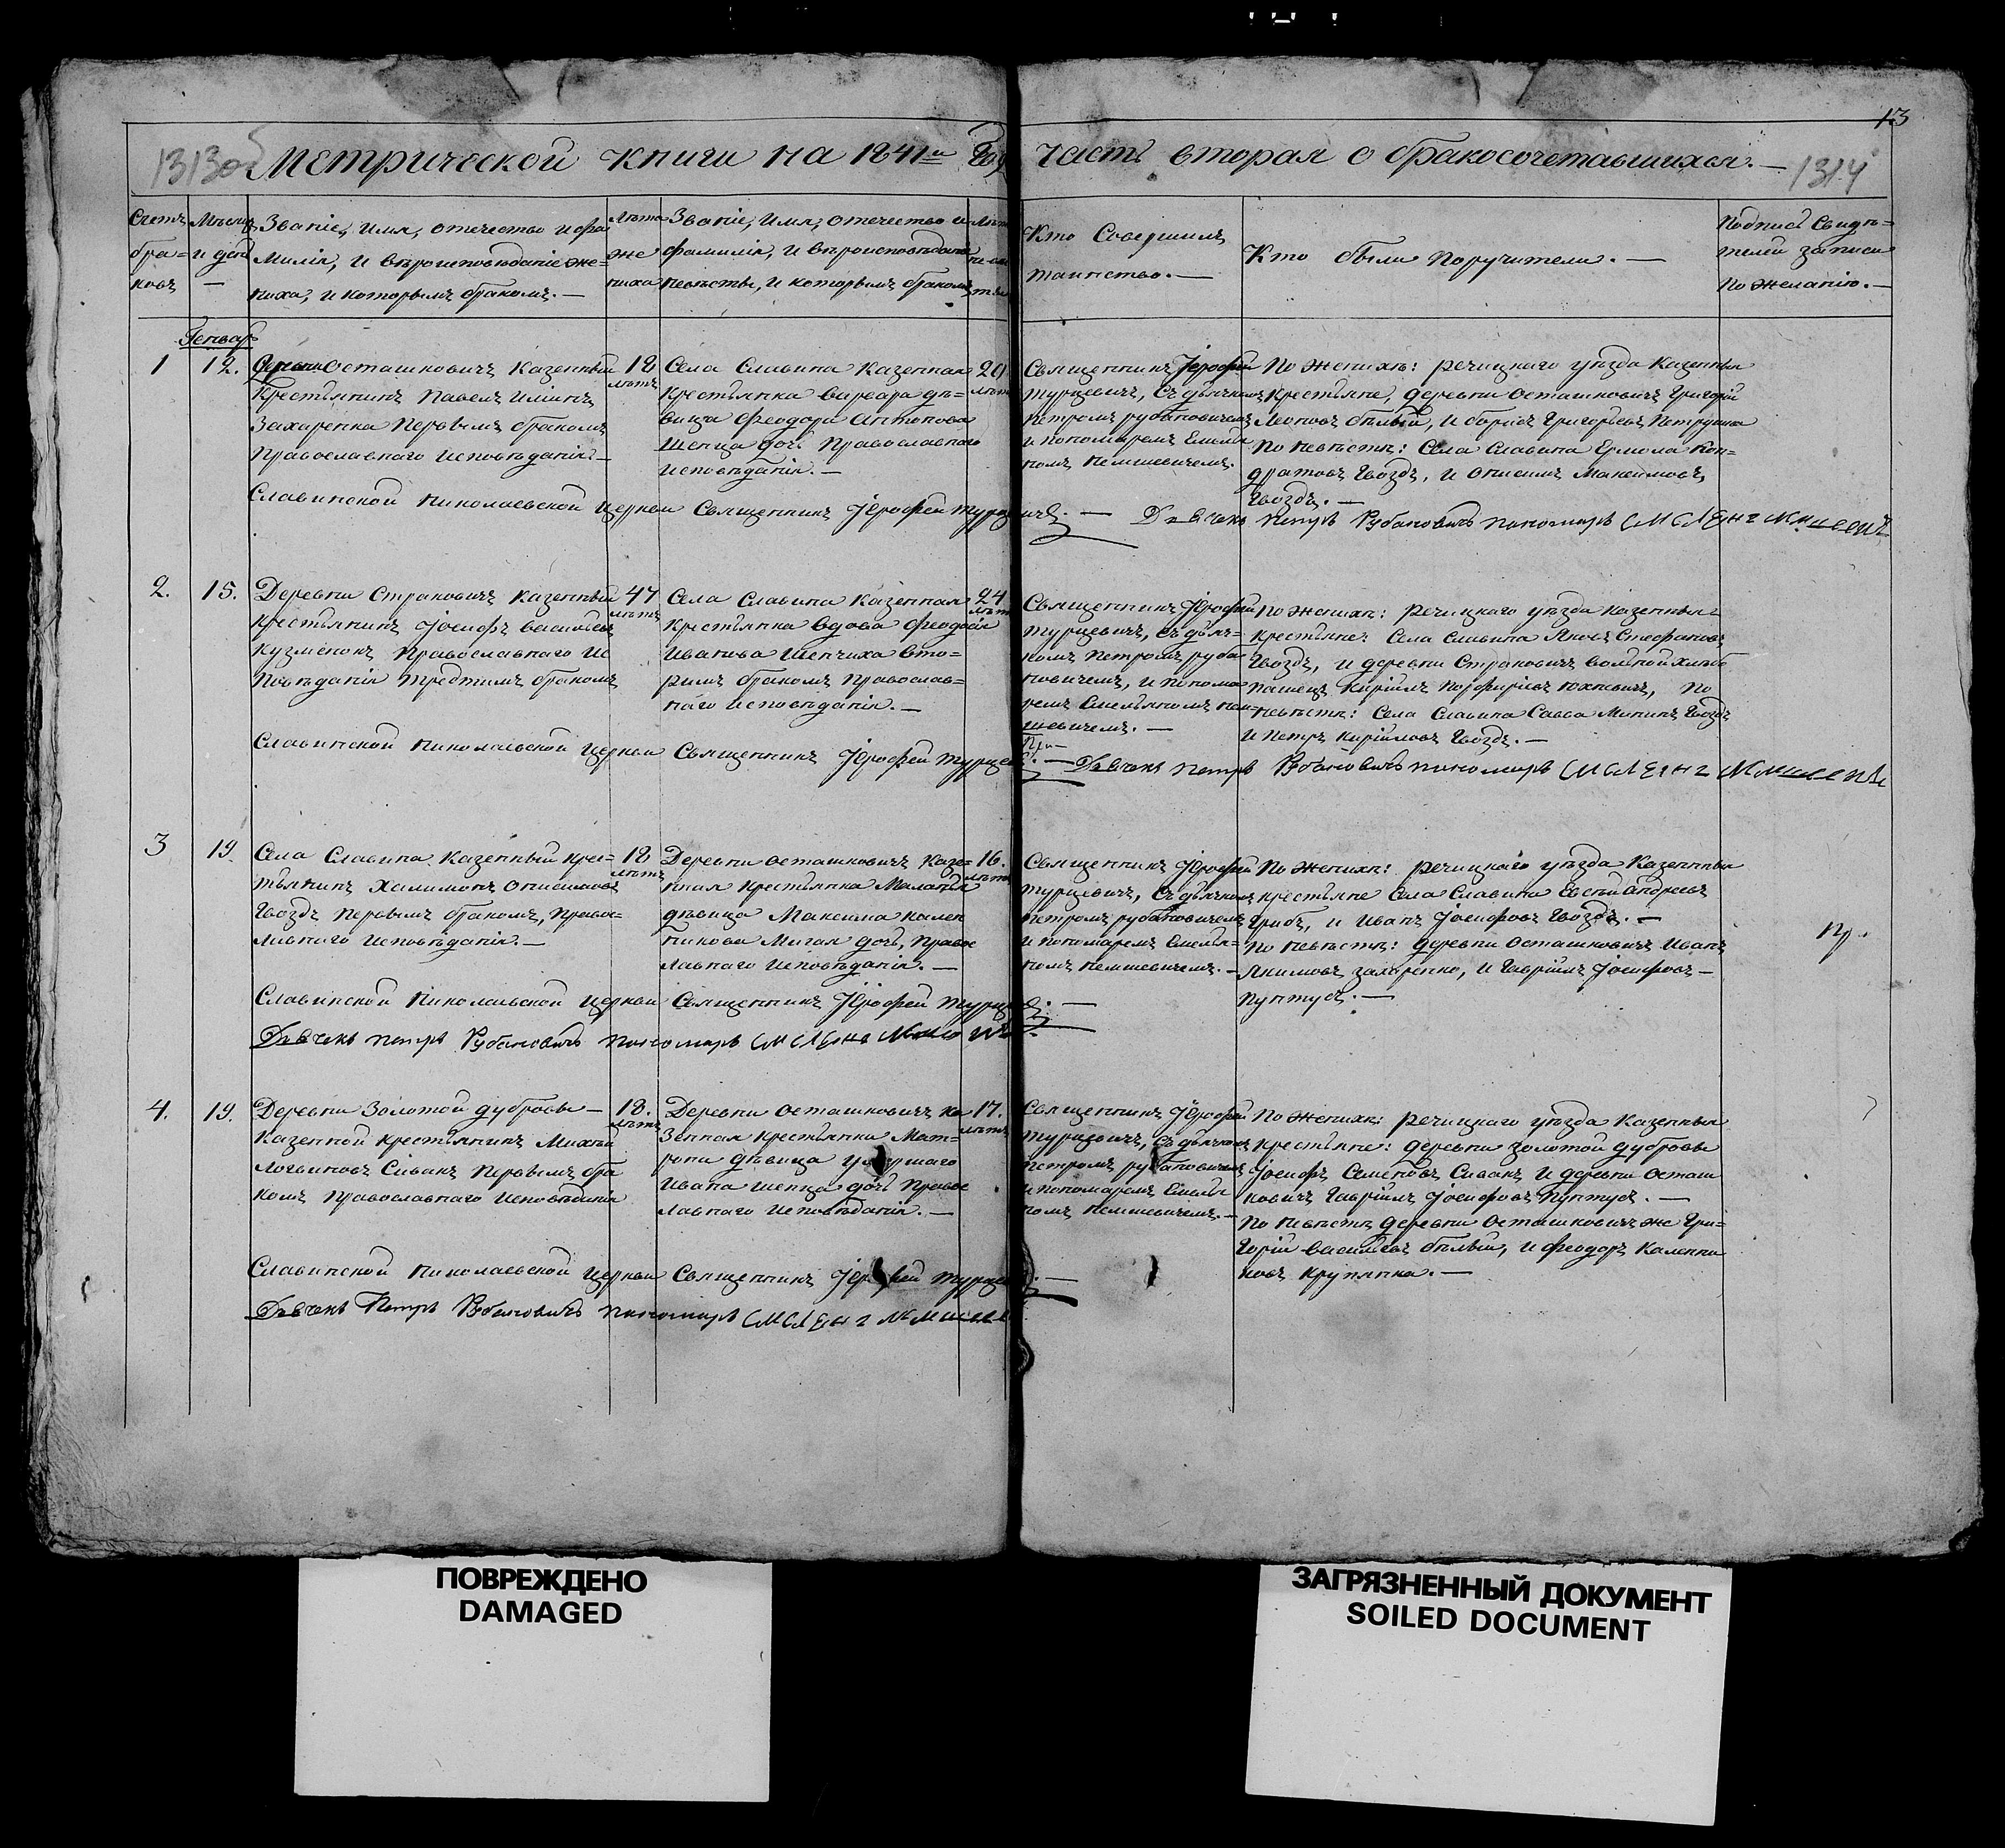 13
1313об Метрической книги на 1841й Годъ часть вторая о бракосочетавшихся. — 1314
Счетъ бра=ковъ
Мѣсяцъ и день —
Званіе, имя, отечество и фа
милія, и вѣроисповѣданіе же=
ниха, и которымъ бракомъ. —
Лѣта же ниха
Званіе, имя, отечество и
фамилія, и вѣроисповѣданіе
невѣсты, и которымъ бракомъ
Лѣта
Кто Совершилъ
таинство. —
Кто были поручители. —
Подпись Свидѣ=
телей записи
по желанію. —
Генварь
1
12.
Деревни Осташковичъ казенный
крестьянинъ Павелъ Илiинъ
Захаренка первымъ бракомъ
православнаго исповѣданія. —
18
лѣтъ
Села Славина казенная
крестьянка Варвара дѣ=
вица Феодора Антонова
Шепца дочь православнаго
исповѣданія. —
20
лѣтъ
Священникъ Іерофей
Турцевичъ, съ дьячкомъ
Петромъ Рубановичемъ
и пономаремъ Емелья
номъ Немшевичемъ.
По женихѣ: Речицкаго уѣзда казенныи
крестьяне, деревни Осташковичъ Григорій
Леоновъ Бѣлый, и Борисъ Григорьевъ
По невѣстѣ: Села Славина Ермола Кон=
дратовъ Гвоздъ, и Онисимъ Максимовъ
Гвоздъ. —
Славинской Николаевской церкви Священникъ Іерофей Турцевичъ. — Дьячекъ Петръ Рубановичъ пономарь
2.
15.
Деревни Страковичъ казенный
крестьянинъ Іосифъ Васильевъ
Кузменокъ православнаго ис
повѣданія третіимъ бракомъ
47
лѣтъ
Села Славина казенная
крестьянка вдова Феодосія
Иванова Шепчиха вто=
рымъ бракомъ православ=
наго исповѣданія. —
24
лѣтъ
Священникъ Іерофей
Турцевичъ, съ дьяч=
комъ Петромъ Руба
новичемъ, и понома
ремъ Емельяномъ Нем=
шевичемъ. —
По женихѣ: Речицкаго уѣзда казенныи
крестьяне: Села Славина Яковъ Стефановъ
Гвоздъ, и деревни Страковичъ вольной хлѣбо
пашецъ Кирiилъ Порфирiевъ Юхневичъ, по
невѣстѣ: Села Славина Савва Мининъ Гвоздъ
и Петръ Кирiиловъ Гвоздъ. —
Славинской Николаевской церкви Священникъ Іерофей Турцевичъ. — Дьячекъ Петръ Рубановичъ пономарь
3
19.
Села Славина казенный крес=
тьянинъ Халимонъ Онисимовъ
Гвоздъ первымъ бракомъ, право=
лавнаго исповѣданія. —
18
лѣтъ
Деревни Осташковичъ казе=
нная крестьянка Маланья
дѣвица Максима Кален
никова Мигая дочь, правос
лавнаго исповѣданія. —
16.
лѣтъ
Священникъ Іерофей
Турцевичъ, съ дьячкомъ
Петромъ Рубановичемъ
и пономаремъ Емелья=
номъ Немшевичемъ. —
По женихѣ: Речицкаго уѣзда казенныи
крестьяне Села Славина Евсей Андреевъ
Грибъ, и Иванъ Іосифовъ Гвоздъ. —
По невѣстѣ: деревни Осташковичъ Иванъ
Якимовъ Захаренко, и Гаврiилъ Іосифовъ —
Пунтусъ. —
Славинской Николаевской церкви Священникъ Іерофей Турцевичъ. —
Дьячекъ Петръ Рубановичъ пономарь
4.
19.
Деревни Золотой Дубровы —
казенной крестьянинъ Михѣй
Логвиновъ Сивакъ первымъ бра
комъ православнаго исповѣданія
18.
лѣтъ
Деревни Осташковичъ ка
зенная крестьянка Мат=
рона дѣвица умершаго
Ивана Шепца дочь правос
лавнаго исповѣданія. —
17.
лѣтъ
Священникъ Іерофей
Турцевичъ, съ дьячкомъ
Петромъ Рубановичемъ
и пономаремъ Емелья
номъ Немшевичемъ. —
По женихѣ: Речицкаго уѣзда казенныи
крестьяне: деревни Золотой Дубровы
Іосифъ Семеновъ Сивакъ и деревни Осташ
ковичъ Гаврiилъ Іосифовъ Пунтусъ. —
По невѣстѣ деревни Осташковичъ же Гри=
горій Васильевъ Бѣлый, и Феодоръ Каленни
ковъ Крупянка. —
Славинской Николаевской церкви Священникъ Іерофей Турцевичъ. —
Дьячекъ Петръ Рубановичъ пономарь
ПОВРЕЖДЕНО
DAMAGED
ЗАГРЯЗНЕННЫЙ ДОКУМЕНТ
SOILED DOCUMENT